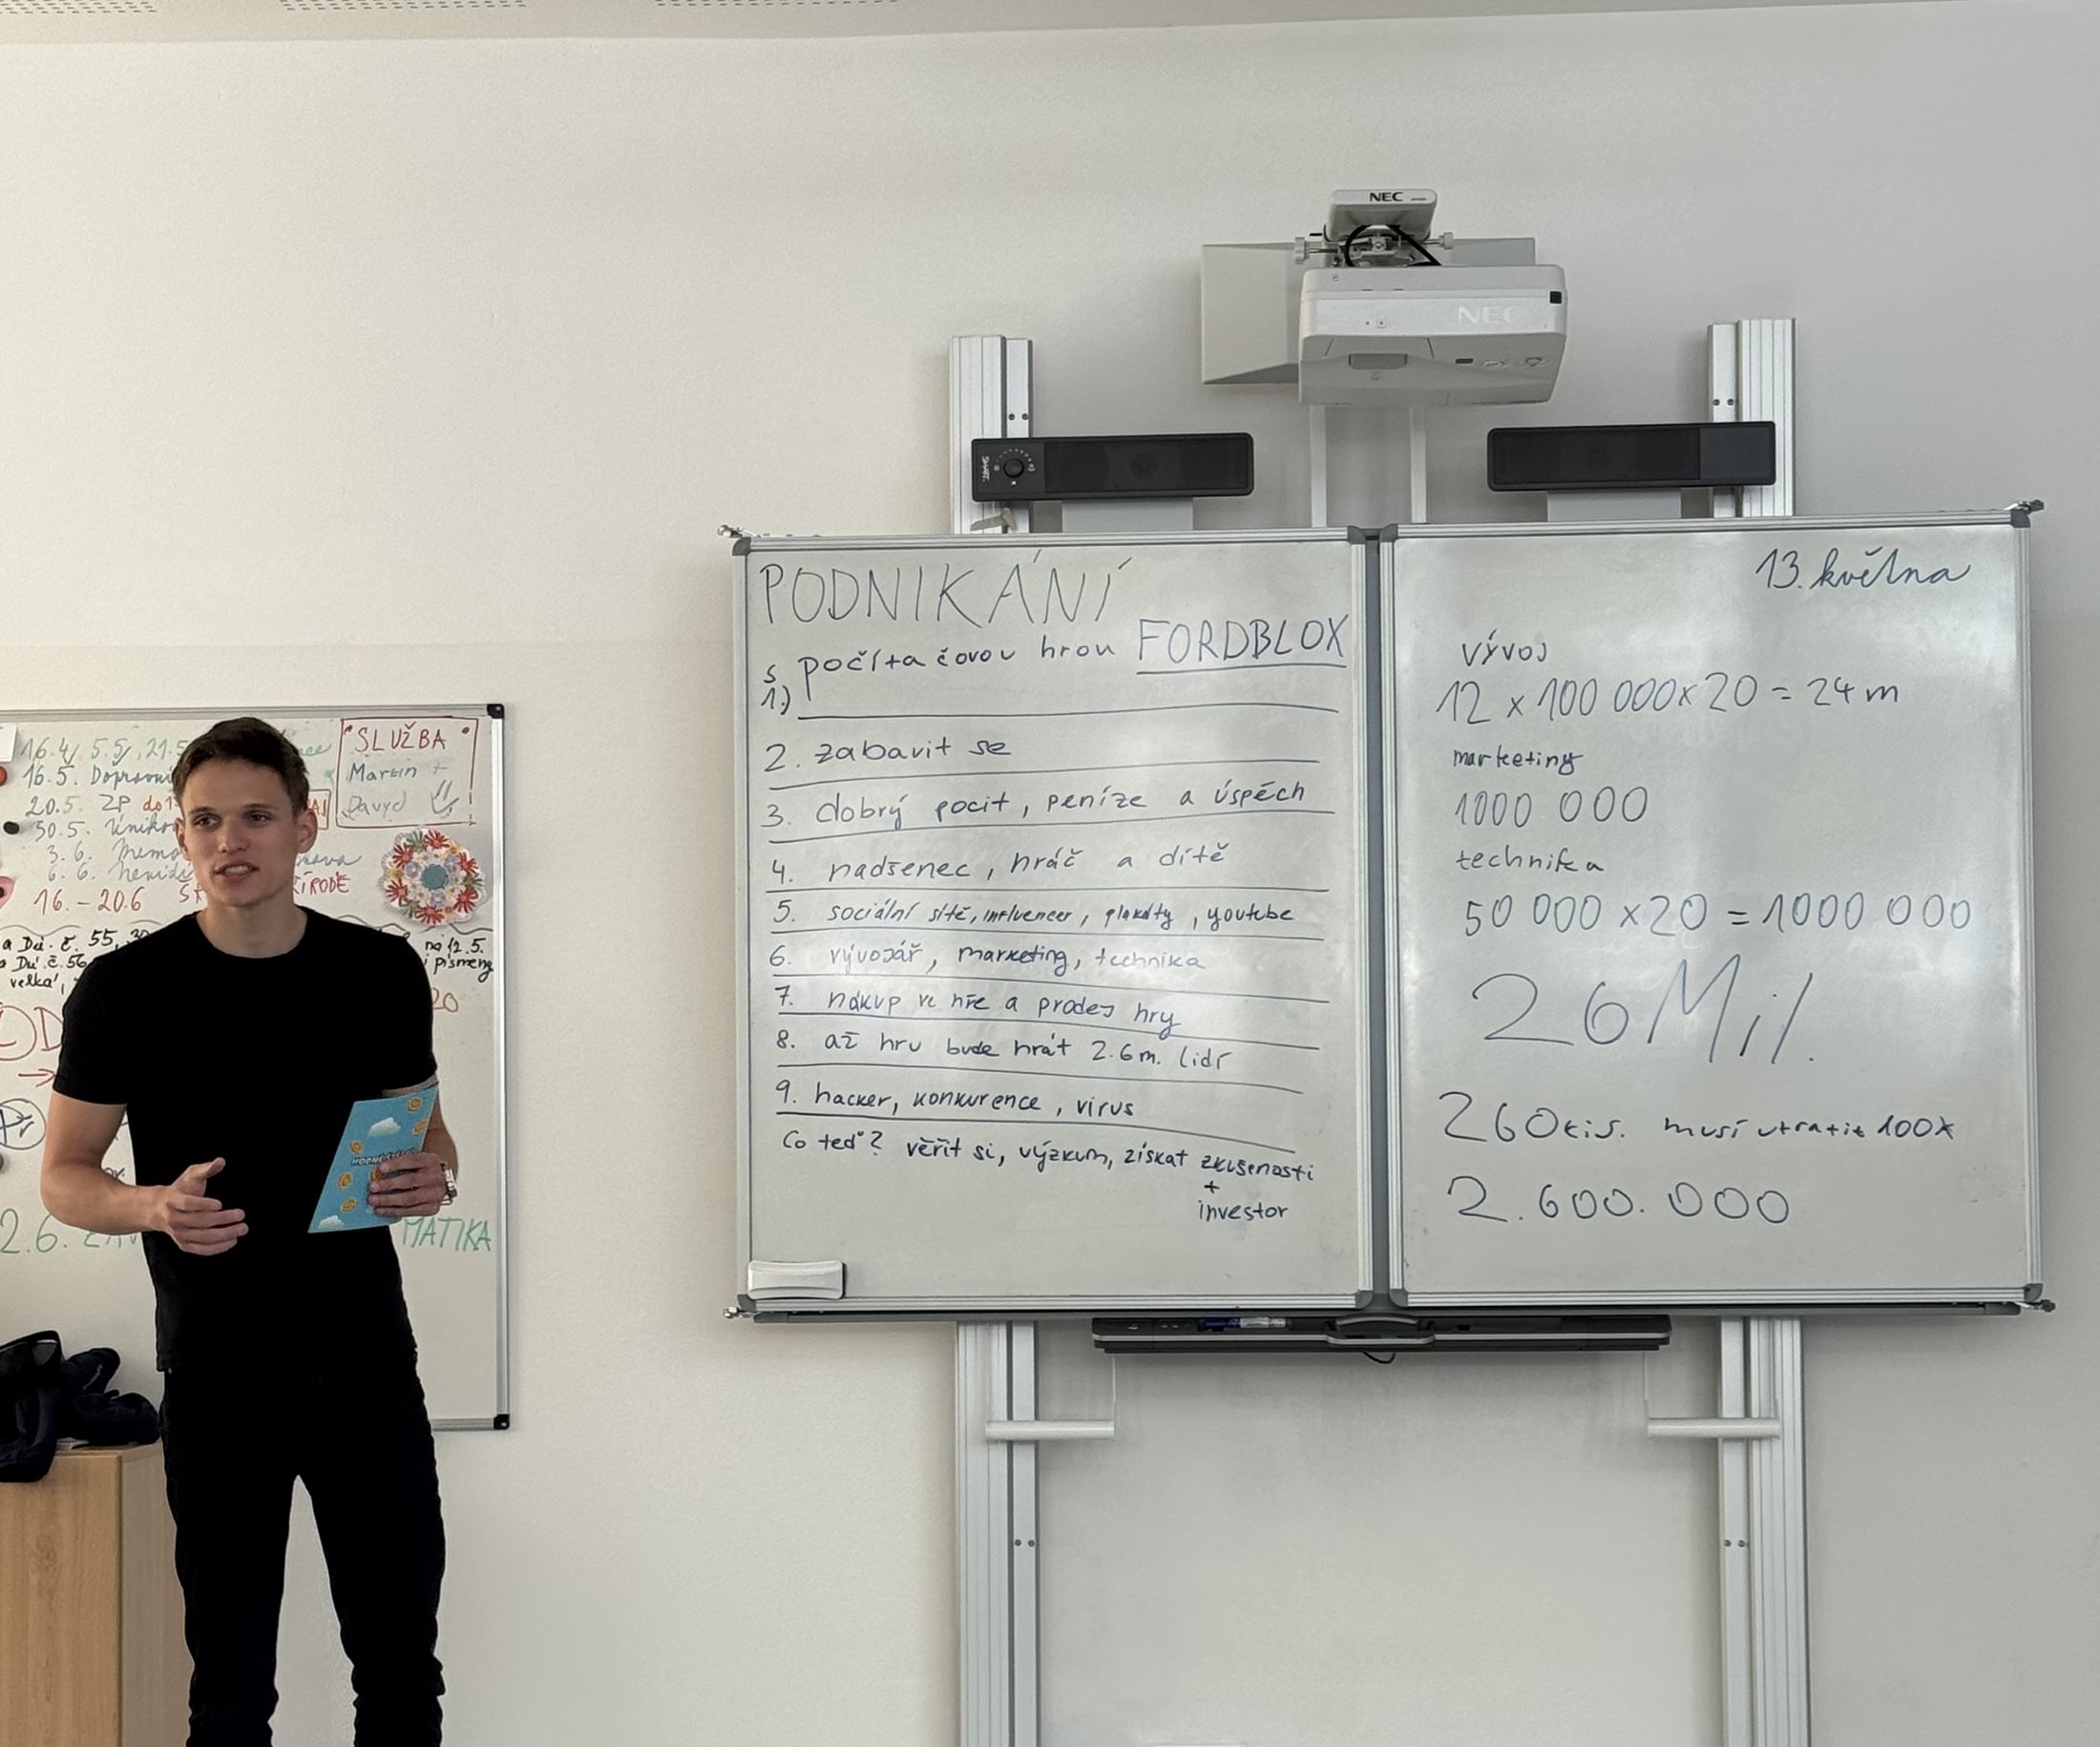 NEC
NEC
SMART
PODNIKÁNÍ
s počítačovou hrou FORDBLOX
1.)
2. zabavit se
3. dobrý pocit, peníze a úspěch
4. nadšenec, hráč a dítě
5. sociální sítě, influencer, plakáty, youtube
6. vývojář, marketing, technika
7. nákup ve hře a prodej hry
8. až hru bude hrát 2.6m. lidí
9. hacker, konkurence, virus
Co teď? věřit si, výzkum, získat zkušenosti
+
investor
13. května
vývoj
12 x 100 000 x 20 = 24 m
marketing
1000 000
technika
50 000 x 20 = 1000 000
26 Mil.
260 tis. musí utratit 100x
2.600.000
16.4/ 5.5/, 21.5
16.5. Dopravní
20.5. ZP do
30.5.
3.6.
6.6.
16. - 20.6
SLUŽBA
Martin +
Davyd
a Dú. č. 55,
a Dú č. 56
velká,
na 12.5.
písmeng
20
2.6.
MATIKA